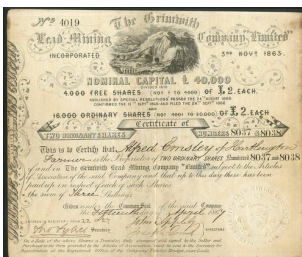 No 4019 The Grimwith
Lead Mining Company, Limited
INCORPORATED 3RD NOVR 1863.
NOMINAL CAPITAL £ 40,000
DIVIDED INTO
4,000 FREE SHARES (NOS 1 TO 4000) OF £2. EACH.
AND
16,000 ORDINARY SHARES OF £2. EACH.
Certificate of
TWO ORDINARY SHARES NUMBERS 8037 AND 8038
This is to Certify that Alfred Emsley of Hartlington
Farmer is the Proprietor of TWO ORDINARY SHARES, Numbered 8037 and 8038
of and in The Grimwith Lead Mining Company Limited subject to the Articles
of Association of the said Company and that up to this day there has been
paid up in respect of each of such Shares
the sum of Three Shillings
Given under the Common Seal of the said Company
the Fifteenth day of April 1867